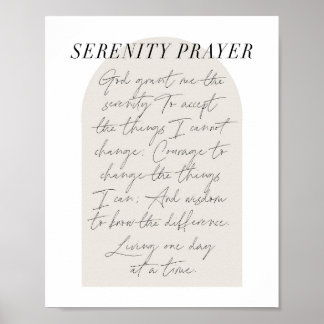 SERENITY PRAYER
God grant me the
serenity To accept
the things I cannot
change; Courage to
change the things
I can; And wisdom
to know the difference.
Living one day
at a time.